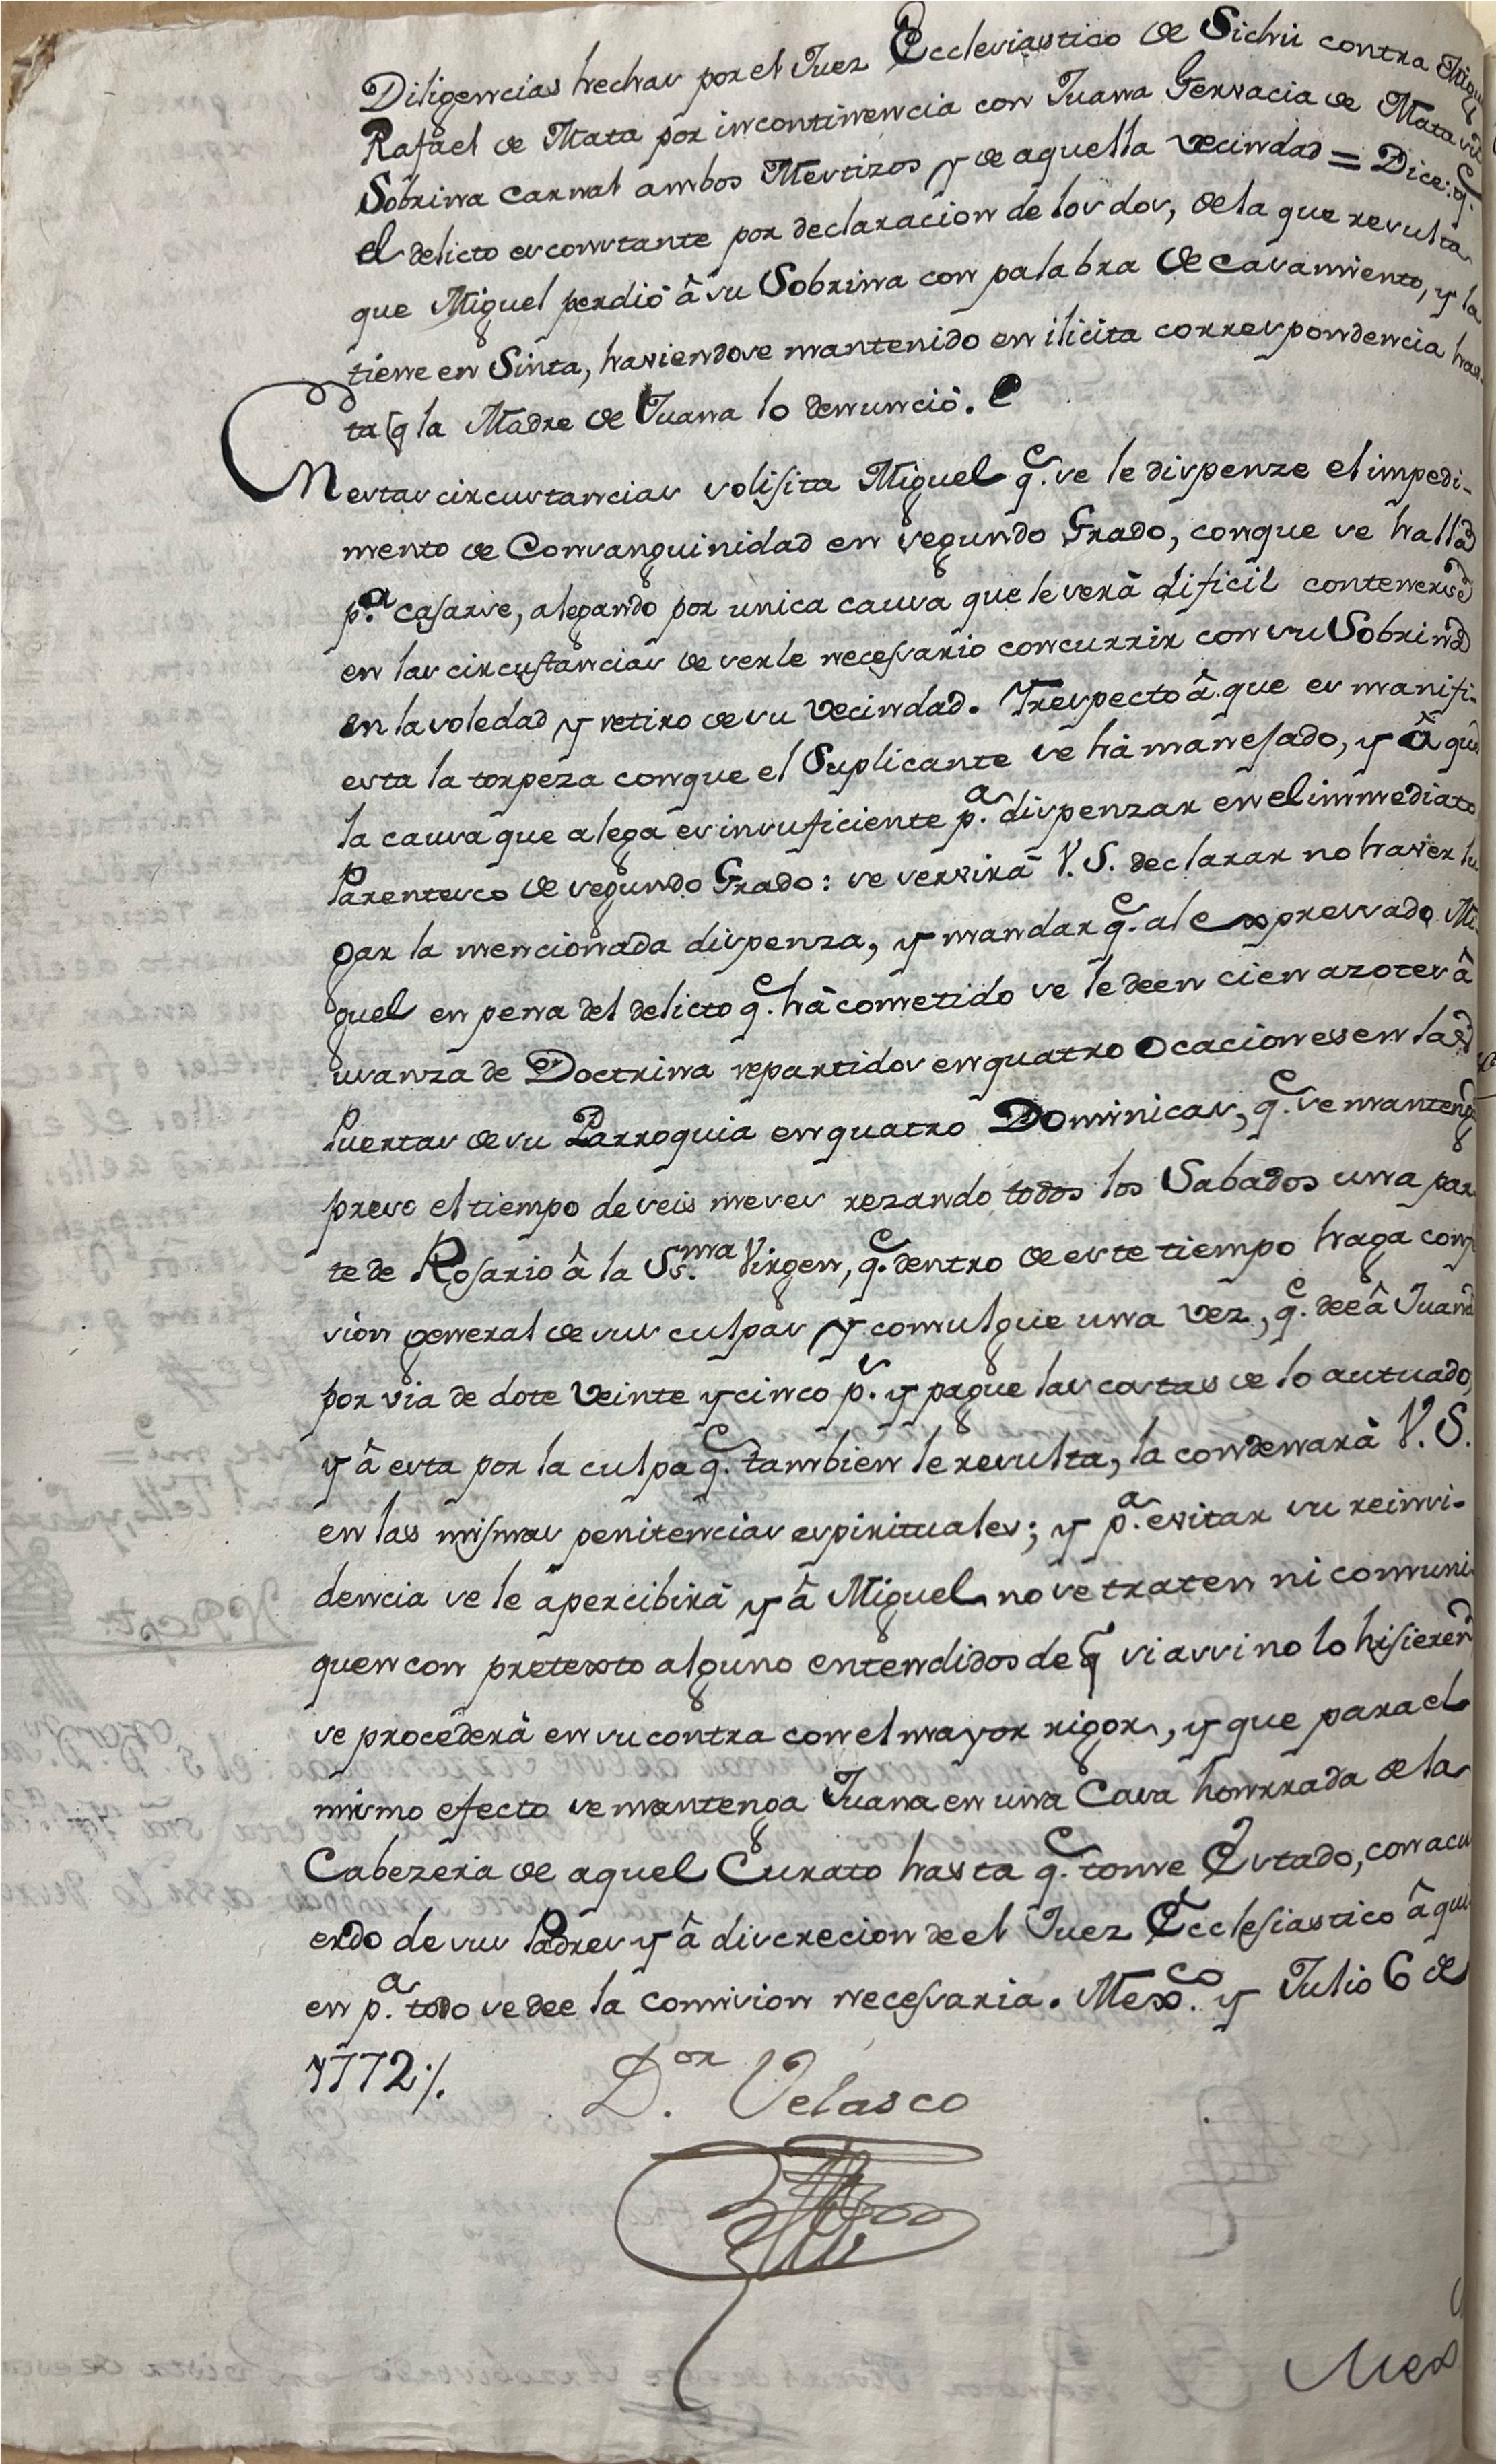 Diligencias hechas por el Juez Ecclesiastico de Sichú contra Migu
Rafael de Mata por incontinencia con Juana Gervacia de Mata
Sobrina carnal ambos Mestizos y de aquella vecindad = Dice: q.e
el delicto es constante por declaracion de los dos, de la que resulta
que Miguel perdiò â su Sobrina con palabra de casamiento, y la
tiene en Sinta, haviendose mantenido en ilicita correspondencia has
ta q la Madre de Juana lo denunciò.
En estas circunstancias solisita Miguel q.e se le dispenze el impedi-
mento de Consanguinidad en segundo Grado, conque se halla
p.a casarse, alegando por unica causa que le serà dificil contenerse
en las circustancias de serle necessario concurrir con su Sobrina
en la soledad y retiro de su vecindad. Y respecto â que es manifi-
esta la torpeza conque el Suplicante se hà manejado, y â que
la causa que alega es insuficiente p.a dispenzar en el immediato
Parentesco de segundo Grado: se servirà V.S. declarar no haver lu
gar la mencionada dispenza, y mandar q.e al expressado Mi
guel en pena del delicto q.e hà cometido se le deen cien azotes â
usanza de Doctrina repartidos en quatro ocaciones en las
Puertas de su Parroquia en quatro Dominicas, q.e se manteng
preso el tiempo de seis meses rezando todos los Sabados una par
te de Rosario â la Ss.ma Virgen, q.e dentro de este tiempo haga conf
sion general de sus culpas y comulgue una vez, q.e dee â Juana
por via de dote veinte y cinco p.s y pague las costas de lo autuado,
y â esta por la culpa q.e tambien le resulta, la condenarà V.S.
en las mismas penitencias espirituales; y p.a evitar su reinsi-
dencia se le apercibirà y â Miguel no se traten ni comuni
quen con pretexto alguno entendidos de q si assi no lo hisieren
se procederà en su contra con el mayor rigor, y que para el
mismo efecto se mantenga Juana en una Casa honrrada de la
Cabezera de aquel Curato hasta q.e tome Estado, con acu
erdo de sus Padres y â discrecion de el Juez Ecclesiastico â qui
en p.a todo se dee la comision necessaria. Mex.co y Julio 6 de
1772./.
D.or Velasco
Mex